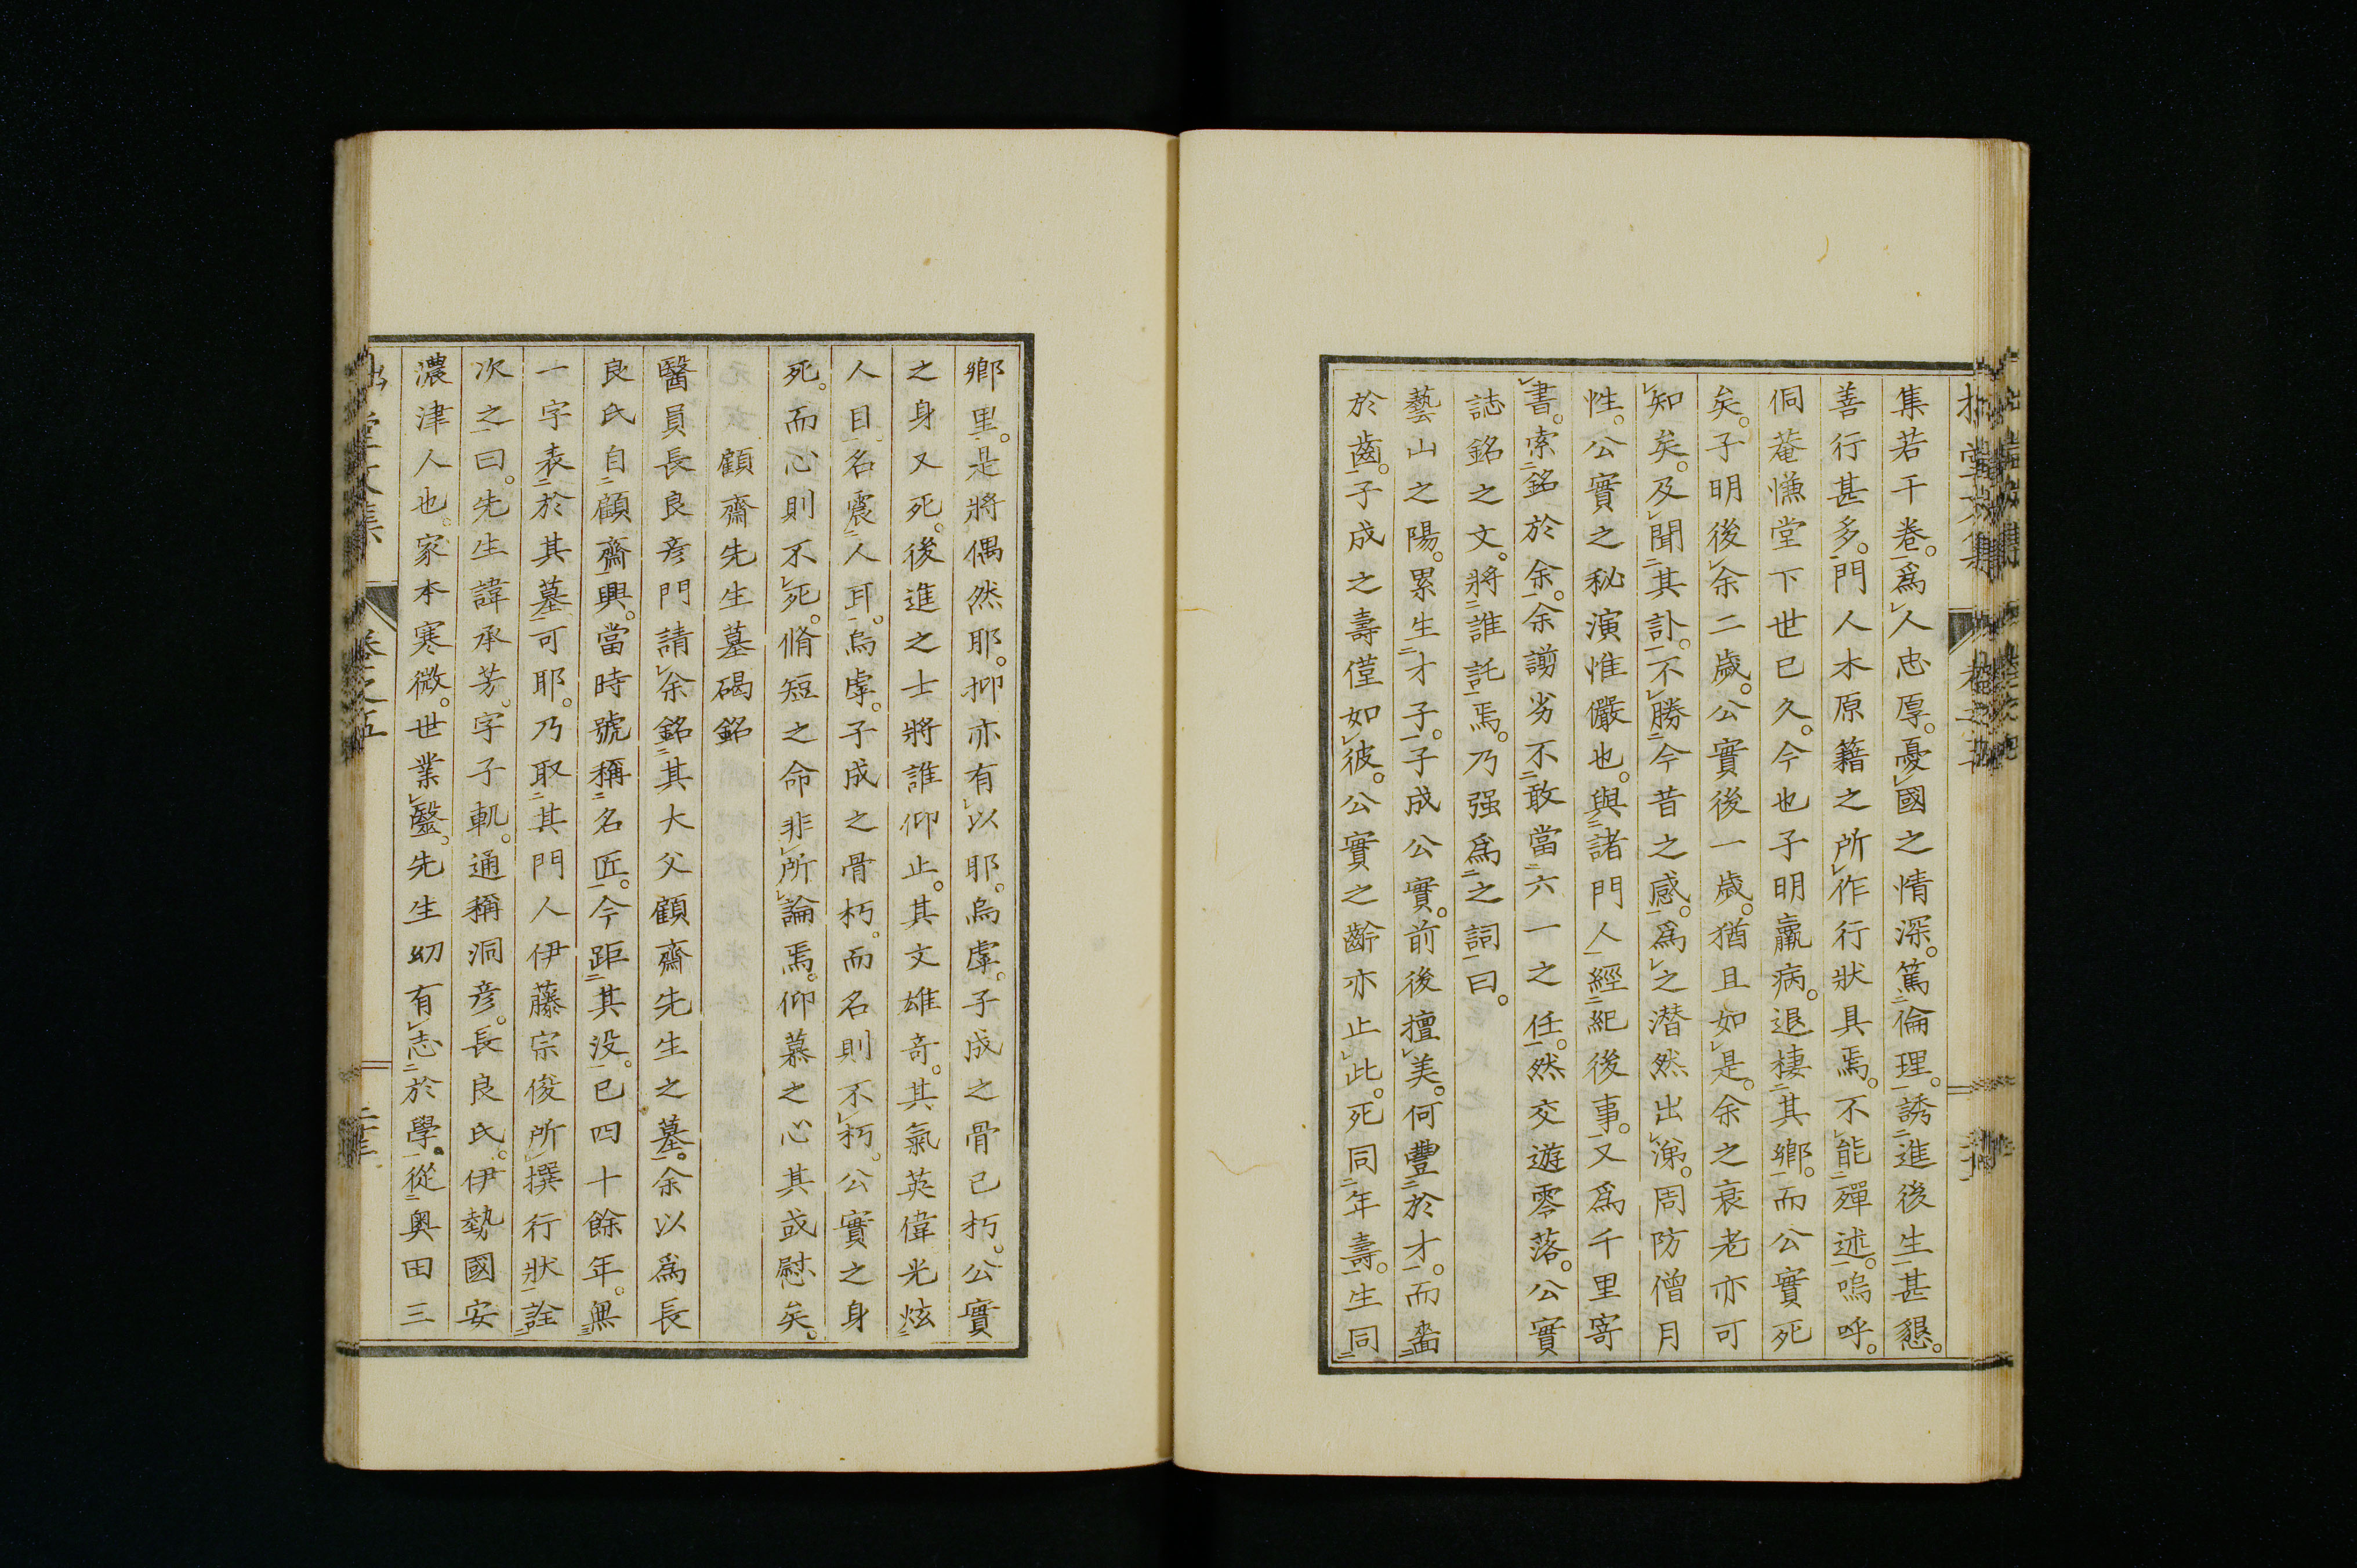 集若干卷。爲人忠厚。憂國之情深。篤倫理。誘進後生甚懇。
善行甚多。門人木原籍之所作行狀具焉。不能殫述。嗚呼。
侗菴慊堂下世已久。今也子明羸病。退棲其鄉。而公實死
矣。子明後余二歲。公實後一歲。猶且如是。余之衰老亦可
知矣。及聞其訃。不勝今昔之感。爲之潜然出涕。周防僧月
性。公實之秘演惟儼也。與諸門人經紀後事。又爲千里寄
書。索銘於余。余謝劣不敢當六一之任。然交遊零落。公實
誌銘之文。將誰託焉。乃强爲之詞曰。
藝山之陽。累生才子。子成公實。前後擅美。何豐於才。而嗇
於齒。子成之壽僅如彼。公實之齡亦止此。死同年壽。生同
鄉里。是將偶然耶。抑亦有以耶。烏虖。子成之骨已朽。公實
之身又死。後進之士將誰仰止。其文雄竒。其氣英偉光炫
人目。名震人耳。烏虖。子成之骨朽。而名則不朽。公實之身
死。而心則不死。脩短之命非所論焉。仰慕之心其或慰矣。
顧齋先生墓碣銘
醫員長良彦門請余銘其大父顧齋先生之墓。余以爲長
良氏自顧齋興。當時號稱名匠。今距其没。已四十餘年。無
一字表於其墓可耶。乃取其門人伊藤宗俊所撰行狀詮
次之曰。先生諱承芳。字子軏。通稱洞彦。長良氏。伊勢國安
濃津人也。家本寒微。世業醫。先生幼有志於學。從奥田三